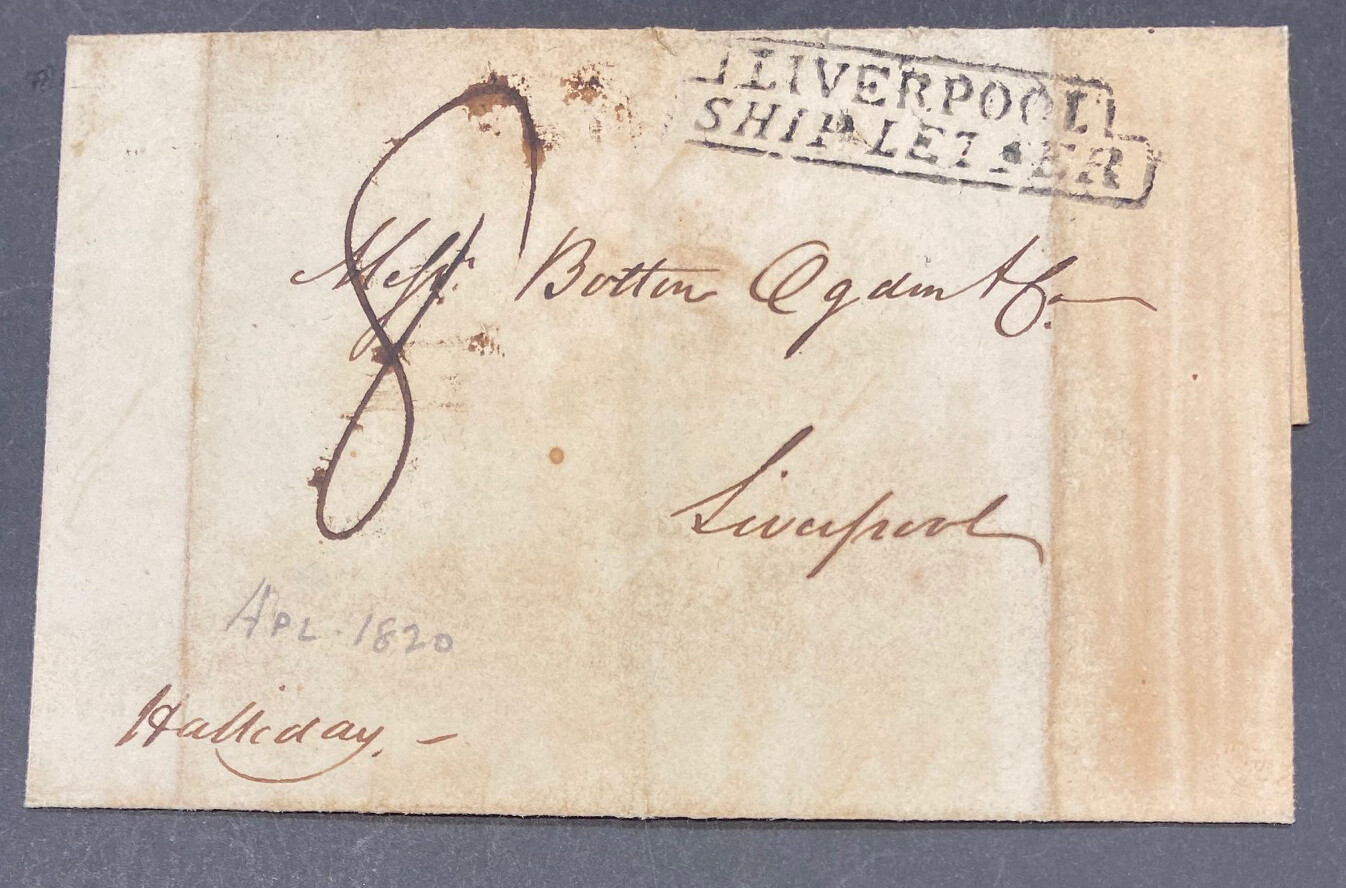 LIVERPOOL
SHIP LETTER
8
Messrs. Bolton Ogden & Co.
Liverpool
APL. 1820
Halliday. -